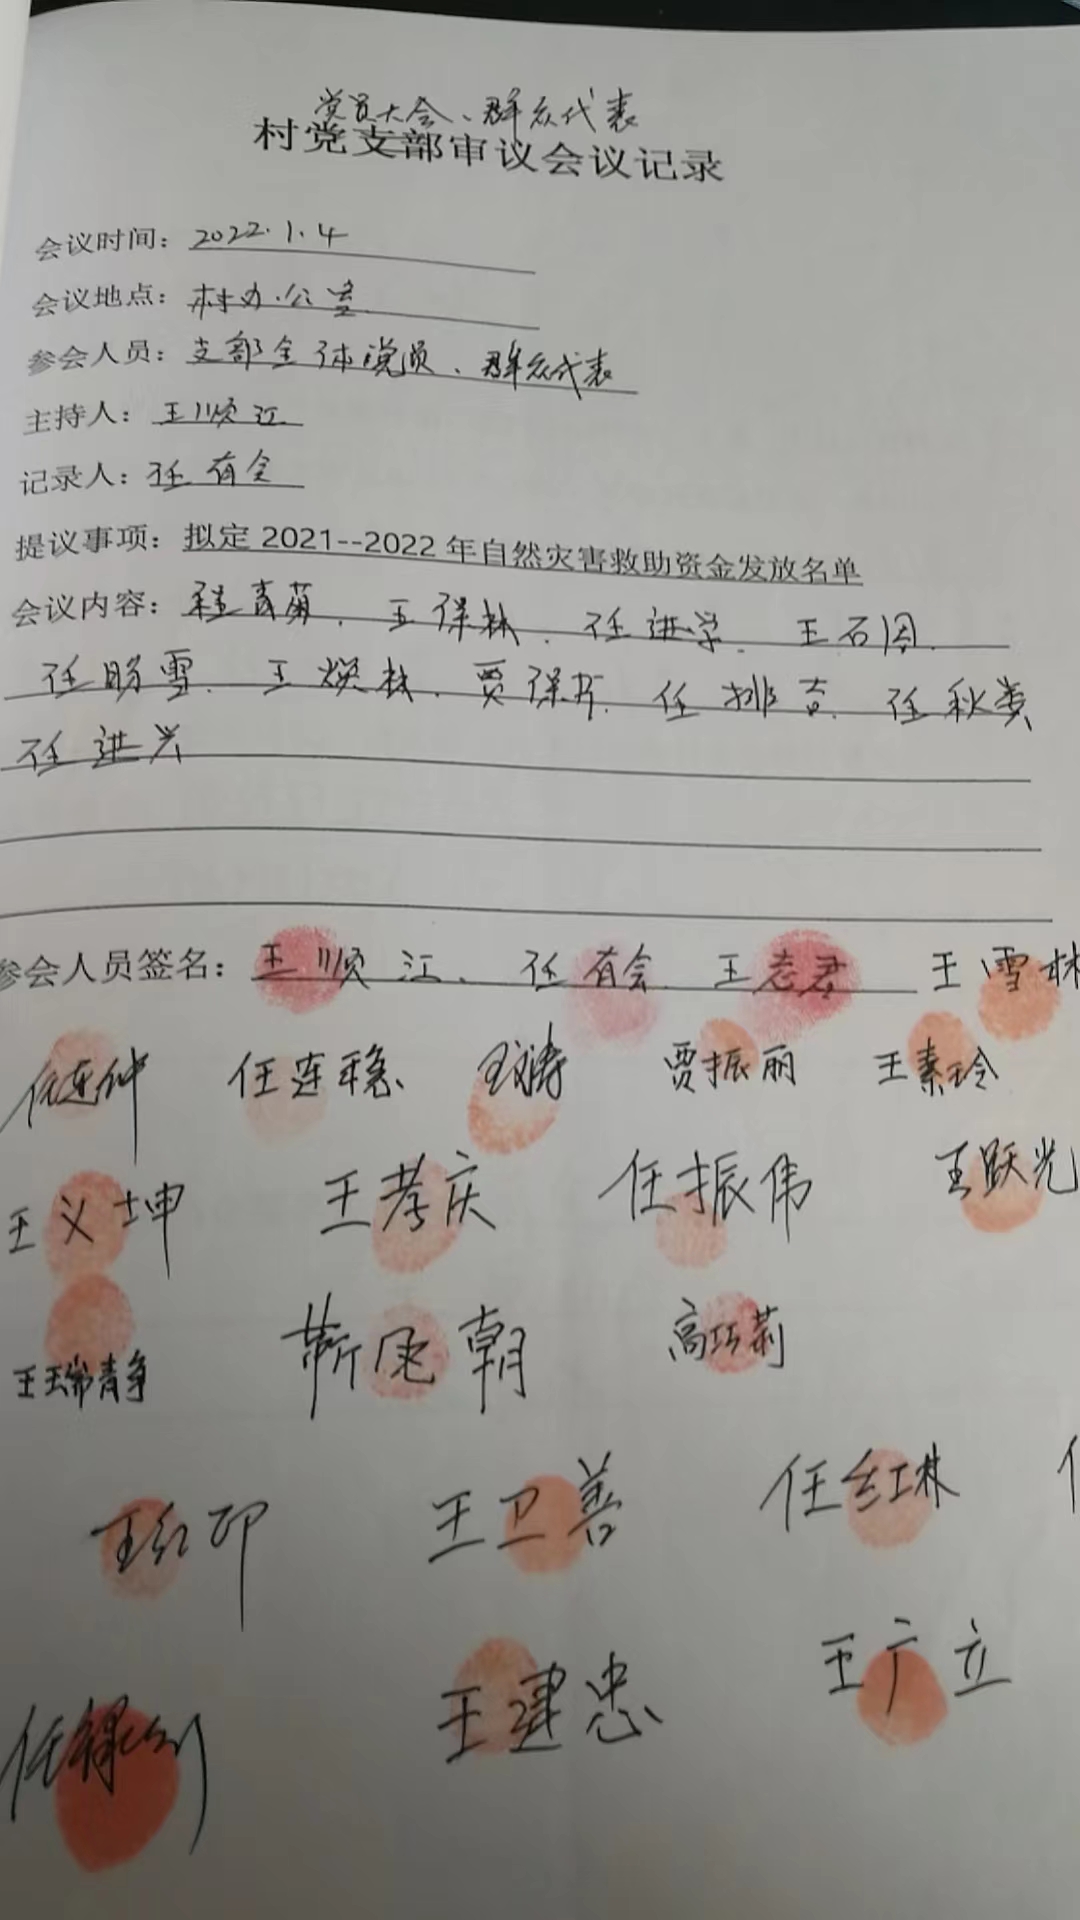 党员大会、群众代表
村党支部审议会议记录
会议时间：2022.1.4
会议地点：村办公室
参会人员：支部全体党员、群众代表
主持人：王顺江
记录人：任有会
提议事项：拟定2021--2022年自然灾害救助资金发放名单
会议内容：程青菊、王保林、任进学、王石同、
任盼雪、王焕林、贾保芹、任排吉、任秋黄
任进兴
参会人员签名：王顺江、任有会 王志君 王雪林
任连仲 任连穏 贾振丽 王素玲
王义坤 王孝庆 任振伟 王跃光
王瑞静 靳凤朝 高巧莉
王红印 王卫善 任红林
王建忠 王广立